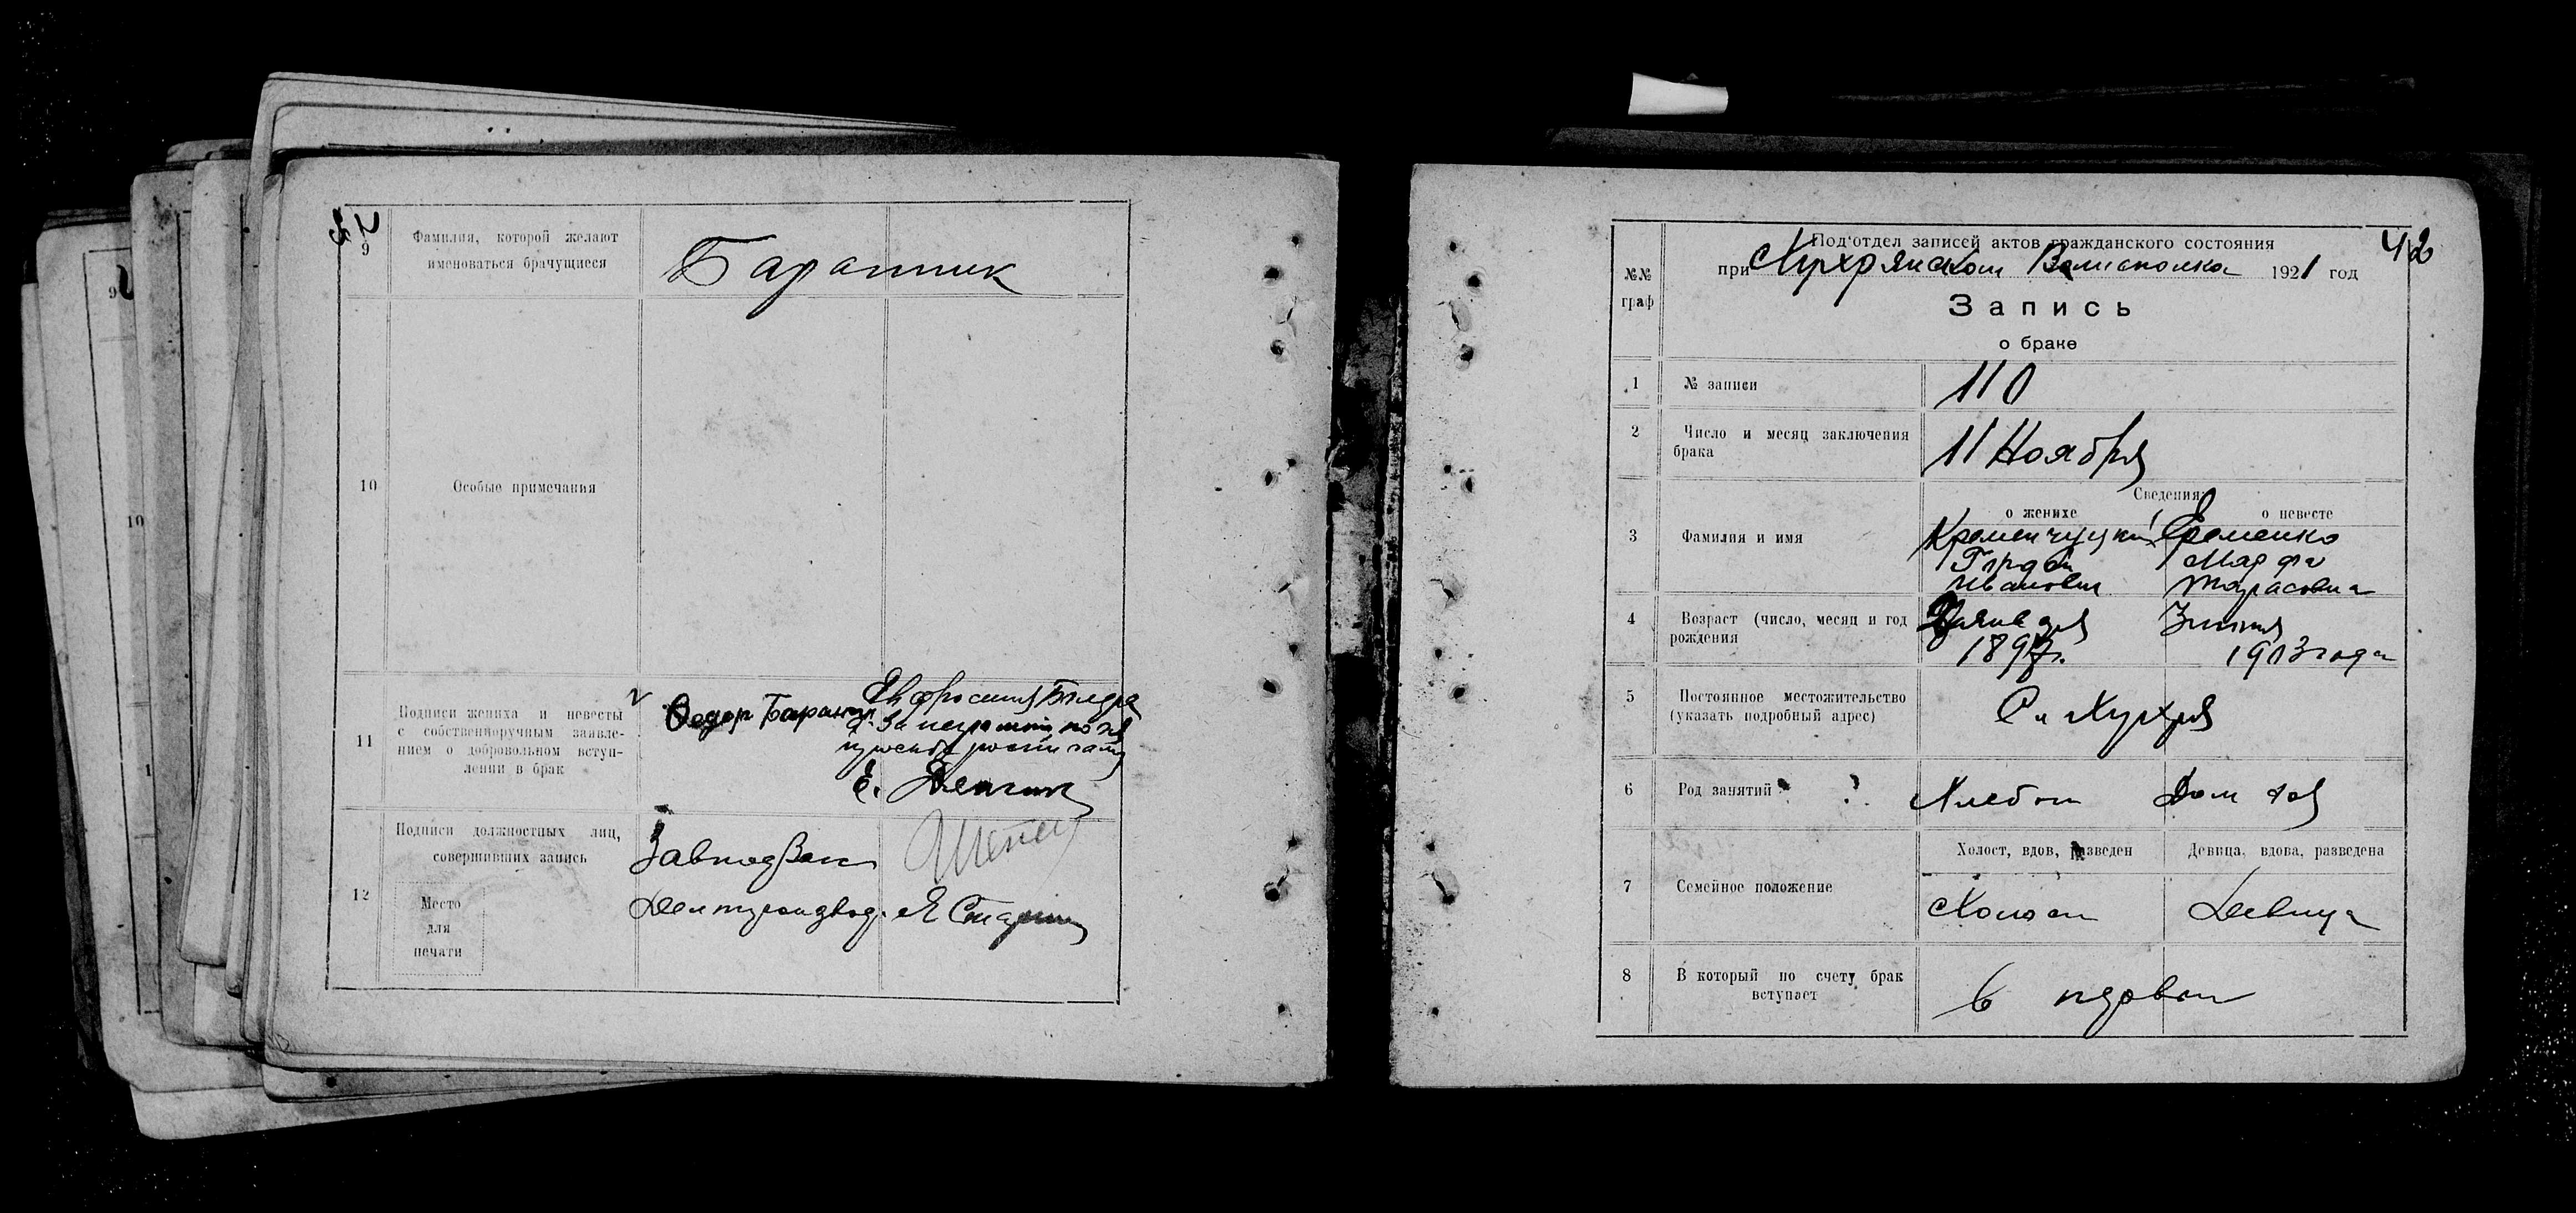 9
Фамилия, которой желают
именоваться брачущиеся
Баранник
10
Особые примечания
11
Подписи жениха и невесты
с собственноручным заявле-
нием о добровольном вступ-
лении в брак
Федор Баранник
Ефросиния
За неграмотн по ея
прозьбе росписался
Е.
12
Подписи должностных лиц,
совершивших запись
Место
для
печати
Завподзагс
Делопроизвод.
42
№№
граф
Подотдел записей актов гражданского состояния
при Хухрянском Волисполкоме 1921 год
Запись
о браке
1
№ записи
110
2
Число и месяц заключения
брака
11 Ноября
Сведения:
о женихе
о невесте
3
Фамилия и имя
Кременчуцкий
Иванович
Еременко
Марфа
Тарасовна
4
Возраст (число, месяц и год
рождения
января
1897г.
1903 года
5
Постоянное местожительство
(указать подробный адрес)
Сл Хухря
6
Род занятий
Хлебоп
Дом хоз
7
Семейное положение
Холост, вдов, разведен
Девица, вдова, разведена
Холост
Девица
8
В который по счету брак
вступает
в первый